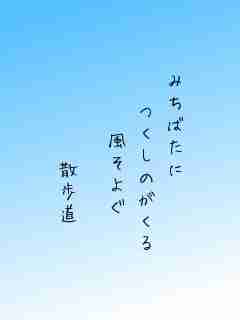 みちばたに
つくしのがくる
風そよぐ
散歩道